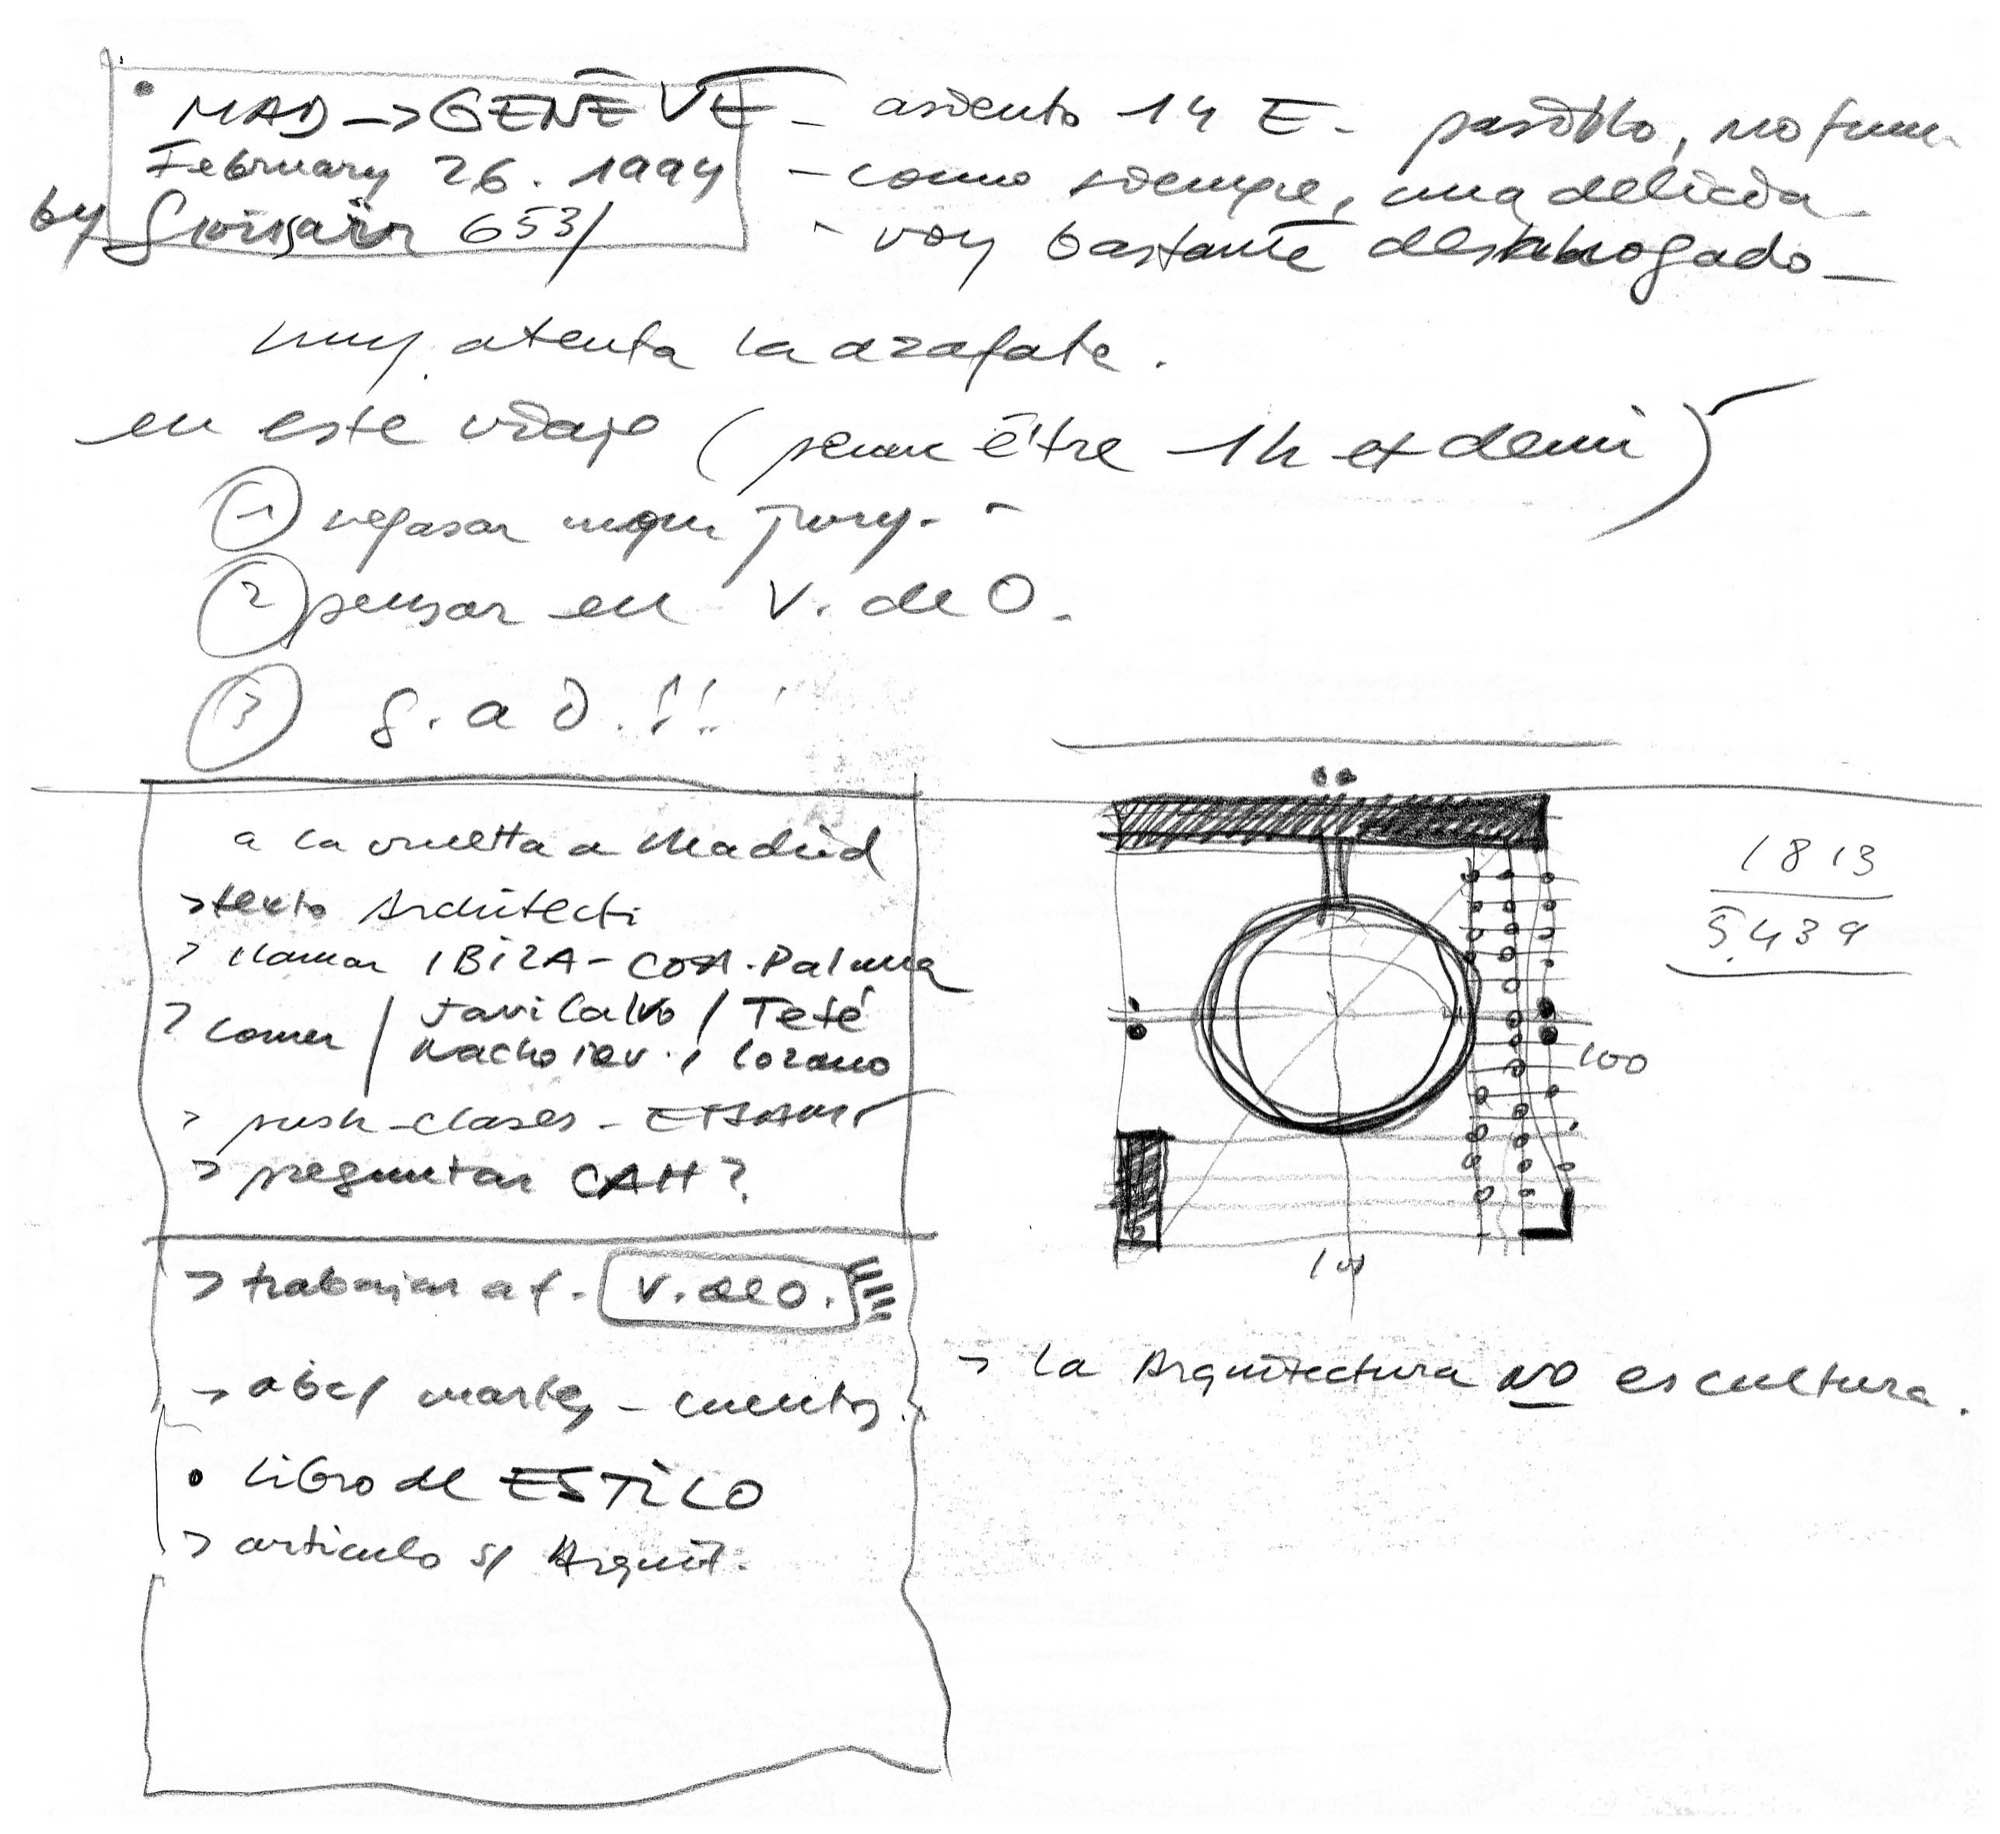 MAD → GENÈVE - asiento 14 E - pasillo, no fum.
February 26. 1994 - como siempre, una delicia.
by Swissair 653/ - voy bastante desahogado -
muy atenta la azafata.
en este viaje ( être 1h et demi)
1 repasar jury.
2 pensar en V. de O.
3 S. a D. !!
a la vuelta a Madrid
> texto Architecti
> llamar IBIZA - COA. Palma
> comer / Javi Calvo / Teté
Nacho / Lozano
> push - clases - ETSAM
> preguntar CAH?
> trabajar a f. V. de O.
> abc/ martes - cuentos.
• Libro de ESTILO
> artículo s/ Arquit.
1813
5.439
100
100
> La Arquitectura NO escultura.